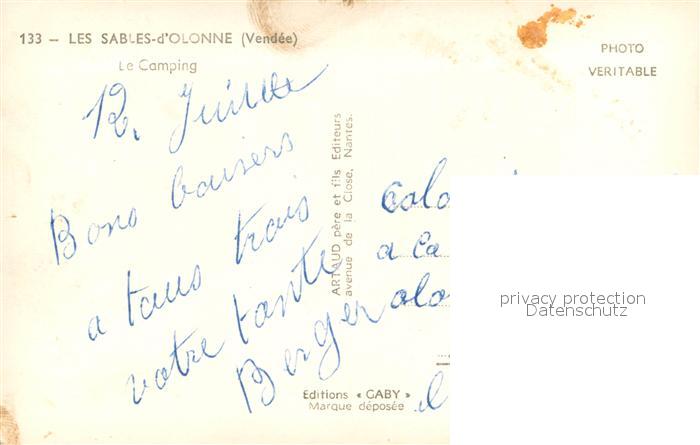 133 - LES SABLES-d'OLONNE (Vendée)
Le Camping
PHOTO
VERITABLE
12. Juillet
Bons baisers
a tous trois
votre tante
Berger
ARTAUD père et fils Editeurs
avenue de la Close, Nantes.
colo
a Ca
olo
privacy protection
Datenschutz
Editions « GABY »
Marque déposée